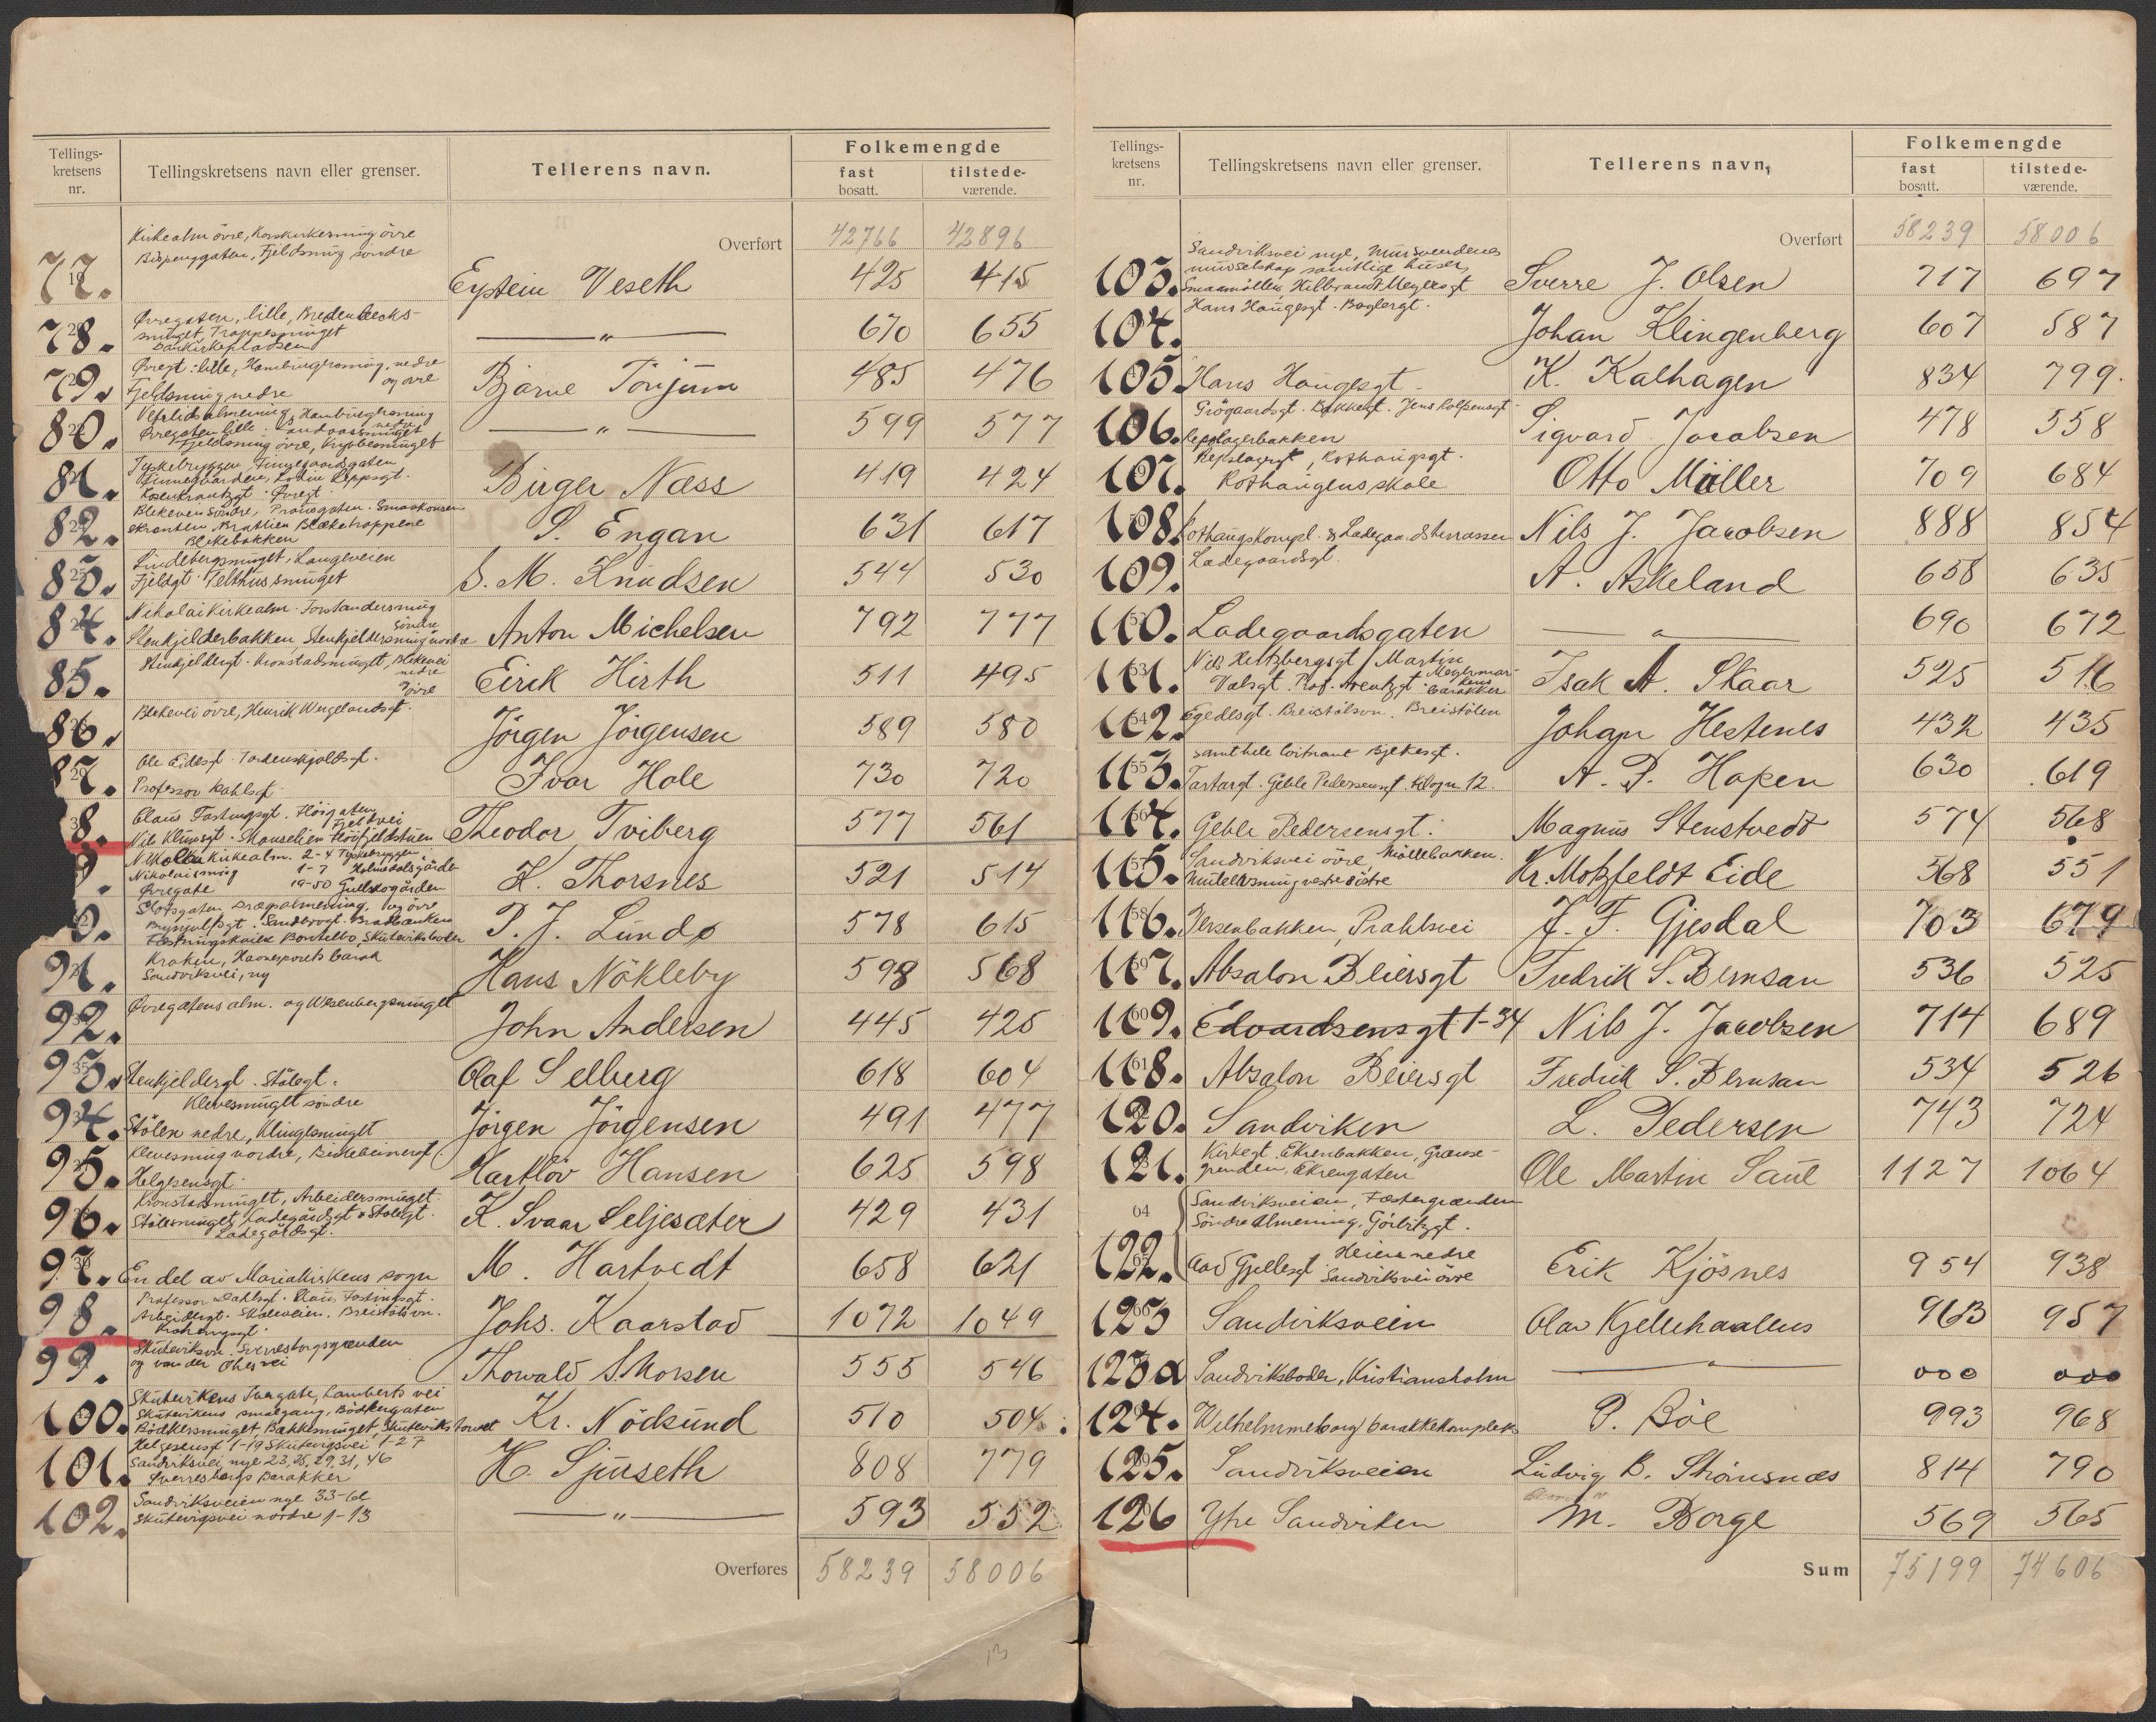 Tellings-
kretsens
nr.
Tellingskretsens navn eller grenser.
Tellerens navn.
Folkemengde
fast
bosatt.
tilstede-
værende.
Overført 42766 42896
Kirkealm övre, Korskirkesmug övre
Bispenggaten, Fjeldsmug söndre
77. Eystein Veseth 425 415
Övregaten, lille, Bredenbecks-
smuget, Trappesmuget
Domkirkepladsen
78. — " — 670 655
Övregt. lille, Hamburgersmug, nedre
og övre
Fjeldsmug nedre
79. Bjarne Tönjum 485 476
Vetrlidsalmening, Hamburgersmug
nedre
Övregaten lille
Fjeldsmug övre, Krybbesmuget
80. — " — 599 577
Tyskebryggen, Finnegaardsgaten
Finnegaardene, Lodin Leppsgt.
Rosenkrantzgt. Övregt.
81. Birger Næss 419 424
Blekeveien söndre,
Skrenten, Bratlien Blekетrappene
Blekebakken
82. S. Engan 631 617
Lindebergsmuget, Langeveien
Fjeldgt. Telthussmuget
83. S. M. Knudsen 544 530
Nikolaikirkealm. Forstandersmug
söndre
Stenkjelderbakken, Stenkjeldersmug nordre
84. Anton Michelsen 792 777
Stenkjeldergt. Kronstadsmuget, Blekevei
nedre
övre
85. Eirik Hirth 511 495
Blekevei övre, Henrik Wergelandsgt.
86. Jörgen Jörgensen 589 580
Ole Eidesgt. Tordenskjoldsgt.
Professor Dahlsgt.
87. Ivar Hole 730 720
Claus Fastingsgt. Flöigaten
Fjeldvei
Nils Klimsgt. Skanselien Flöifjeldstuen
8. Theodor Tviberg 577 561
Nikolai kirkealm. 2-4 Tyskebryggen
Nikolaismug 1-7 Holmedalsgården
Övregate 19-50 Gullskogården
9. K. Thorsnes 521 514
Slotsgaten Dræggealmening, og övre
Brynjulfsgt. Sandbrogt. Bradbænken
Bontelabo, Skuteviksboder
0. P. J. Lundø 578 615
Kroken,
Sandviksvei, ny
91. Hans Nökleby 598 568
Övregatens alm. og Wesenbergsmuget
92. John Andersen 445 425
93. Stenkjeldergt. Stölegt. Olaf Selberg 618 604
Klevesmuget söndre
94. Stölen nedre, Klingesmuget Jörgen Jörgensen 491 477
Klevesmug nordre, Birkebeinergt.
Helgesensgt.
95. Hartlöv Hansen 625 598
Kronstadsmuget, Arbeidersmuget
Stölesmuget, Ladegårdsgt. & Stölegt.
Ladegårdsgt.
96. K. Svaar Seljesæter 429 431
97. En del av Mariakirkens sogn M. Hartvedt 658 621
Professor Dahlsgt. Claus Fastingsgt.
Arbeidergt. Skoleveien. Breistölsvn.
98. Johs. Kaarstad 1072 1049
Skuteviksvn. Sverresborgsgrenden
og van der Ohesvei
99. Thorvald S. Morsen 555 546
Skutevikens Tvergate, Lamberts vei
Skutevikens smalgang, Bödkergaten
Bödkersmuget, Bakkesmuget, Skutevikstorvet
100. Kr. Nödsund 510 504
Helgesensgt 1-19 Skutevigsvei 1-27
Sandviksvei, nye 23, 25, 29, 31, 46
Sverresborgs Barakker
101. H. Sjurseth 808 779
Sandviksveien nye 33-62
Skutevigsvei nordre 1-13
102. — " — 593 552
Overføres 58239 58006
13
Tellings-
kretsens
nr.
Tellingskretsens navn eller grenser.
Tellerens navn,
Folkemengde
fast
bosatt.
tilstede-
værende.
Overført 58239 58006
Sandviksvei nye, Mursvendenes
murselskap samtlige huser,
Smaamöllen Hilbrandt Meyersgt
103. Sverre J. Olsen 717 697
Hans Haugesgt. Baglergt.
104. Johan Klingenberg 607 587
105. Hans Haugesgt. K. Kalhagen 834 799.
Grögaardsgt. Bakkegt. Jens Rolfsensgt
Repslagerbakken
106. Sigvard Jacobsen 478 558
Repslagergt, Rothaugsgt.
Rothaugens skole
107. Otto Müller 709 684
108. Rothaugskompl. & Ladegaardsterrassen Nils J. Jacobsen 888 854
109. Ladegaardsgt. A. Askeland 658 635
110. Ladegaardsgaten — " — 690 672
Nils Hertzbergsgt, Martin
Vahlsgt. Prof. Arentzgt.
barakker
111. Isak A. Skaar 525 516
112. Egedesgt. Breistölsvn. Breistölen Johan Hestenes 432 435
Samt hele Bjerkegt.
113. Tartargt. Geble Pedersensgt. A. P. Hopen 630 619
114. Geble Pedersensgt. Magnus Stenstvedt 574 568
Sandviksvei övre, Möllebakken.
115. Kr. Motzfeldt Eide 568 551
116. Iversenbakken, Prahlsvei J. F. Gjesdal 703 679
117. Absalon Beiersgt Fredrik S. Berntsen 536 525
119. Edvardsensgt 1-34 Nils J. Jacobsen 714 689
118. Absalon Beiersgt Fredrik S. Berntsen 534 526
120. Sandviken L. Pedersen 743 724
Kirkegt. Ekrenbakken, Grænse-
grenden, Ekrengaten
121. Ole Martin Saul 1127 1064
64 Sandviksveien, Fæstergrænden
Söndre Almening, Görbitzgt.
Heien nedre
Aad Gjellesgt. Sandviksvei övre
122. Erik Kjösnes 954 938
123 Sandviksveien Olav Kjellehaalens 963 957
123a Sandviksboder, Kristiansholm — " — 000 000
124. Wilhelmineborg barakkekompleks P. Böe 993 968
125. Sandviksveien Ludvig B. Strömsnæs 814 790
126 Ytre Sandviken M. Borge 569 565
Sum 75199 74606